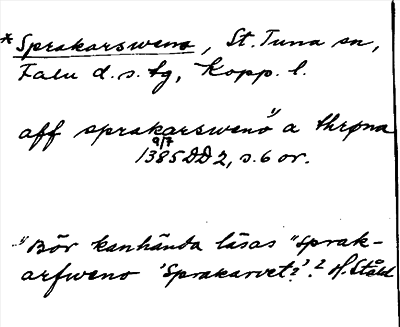 *Sprakarsweno, St. Tuna sn,
Falu d. s. tg, Kopp. l.
aff sprakarswenö" a thrøna
9/7
1385 DD 2, s. 6 or.
"Bör kanhända läsas "sprak-
arfweno 'Sprakarvet?'? H. Ståhl